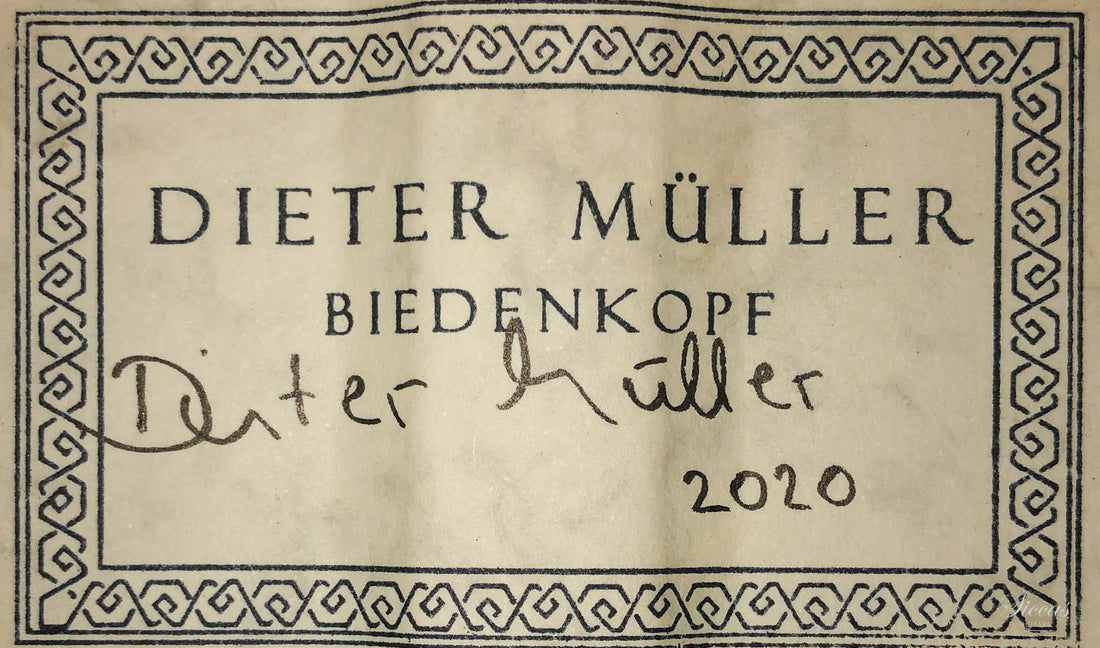 DIETER MÜLLER
BIEDENKOPF
Dieter Müller
2020
Siccas